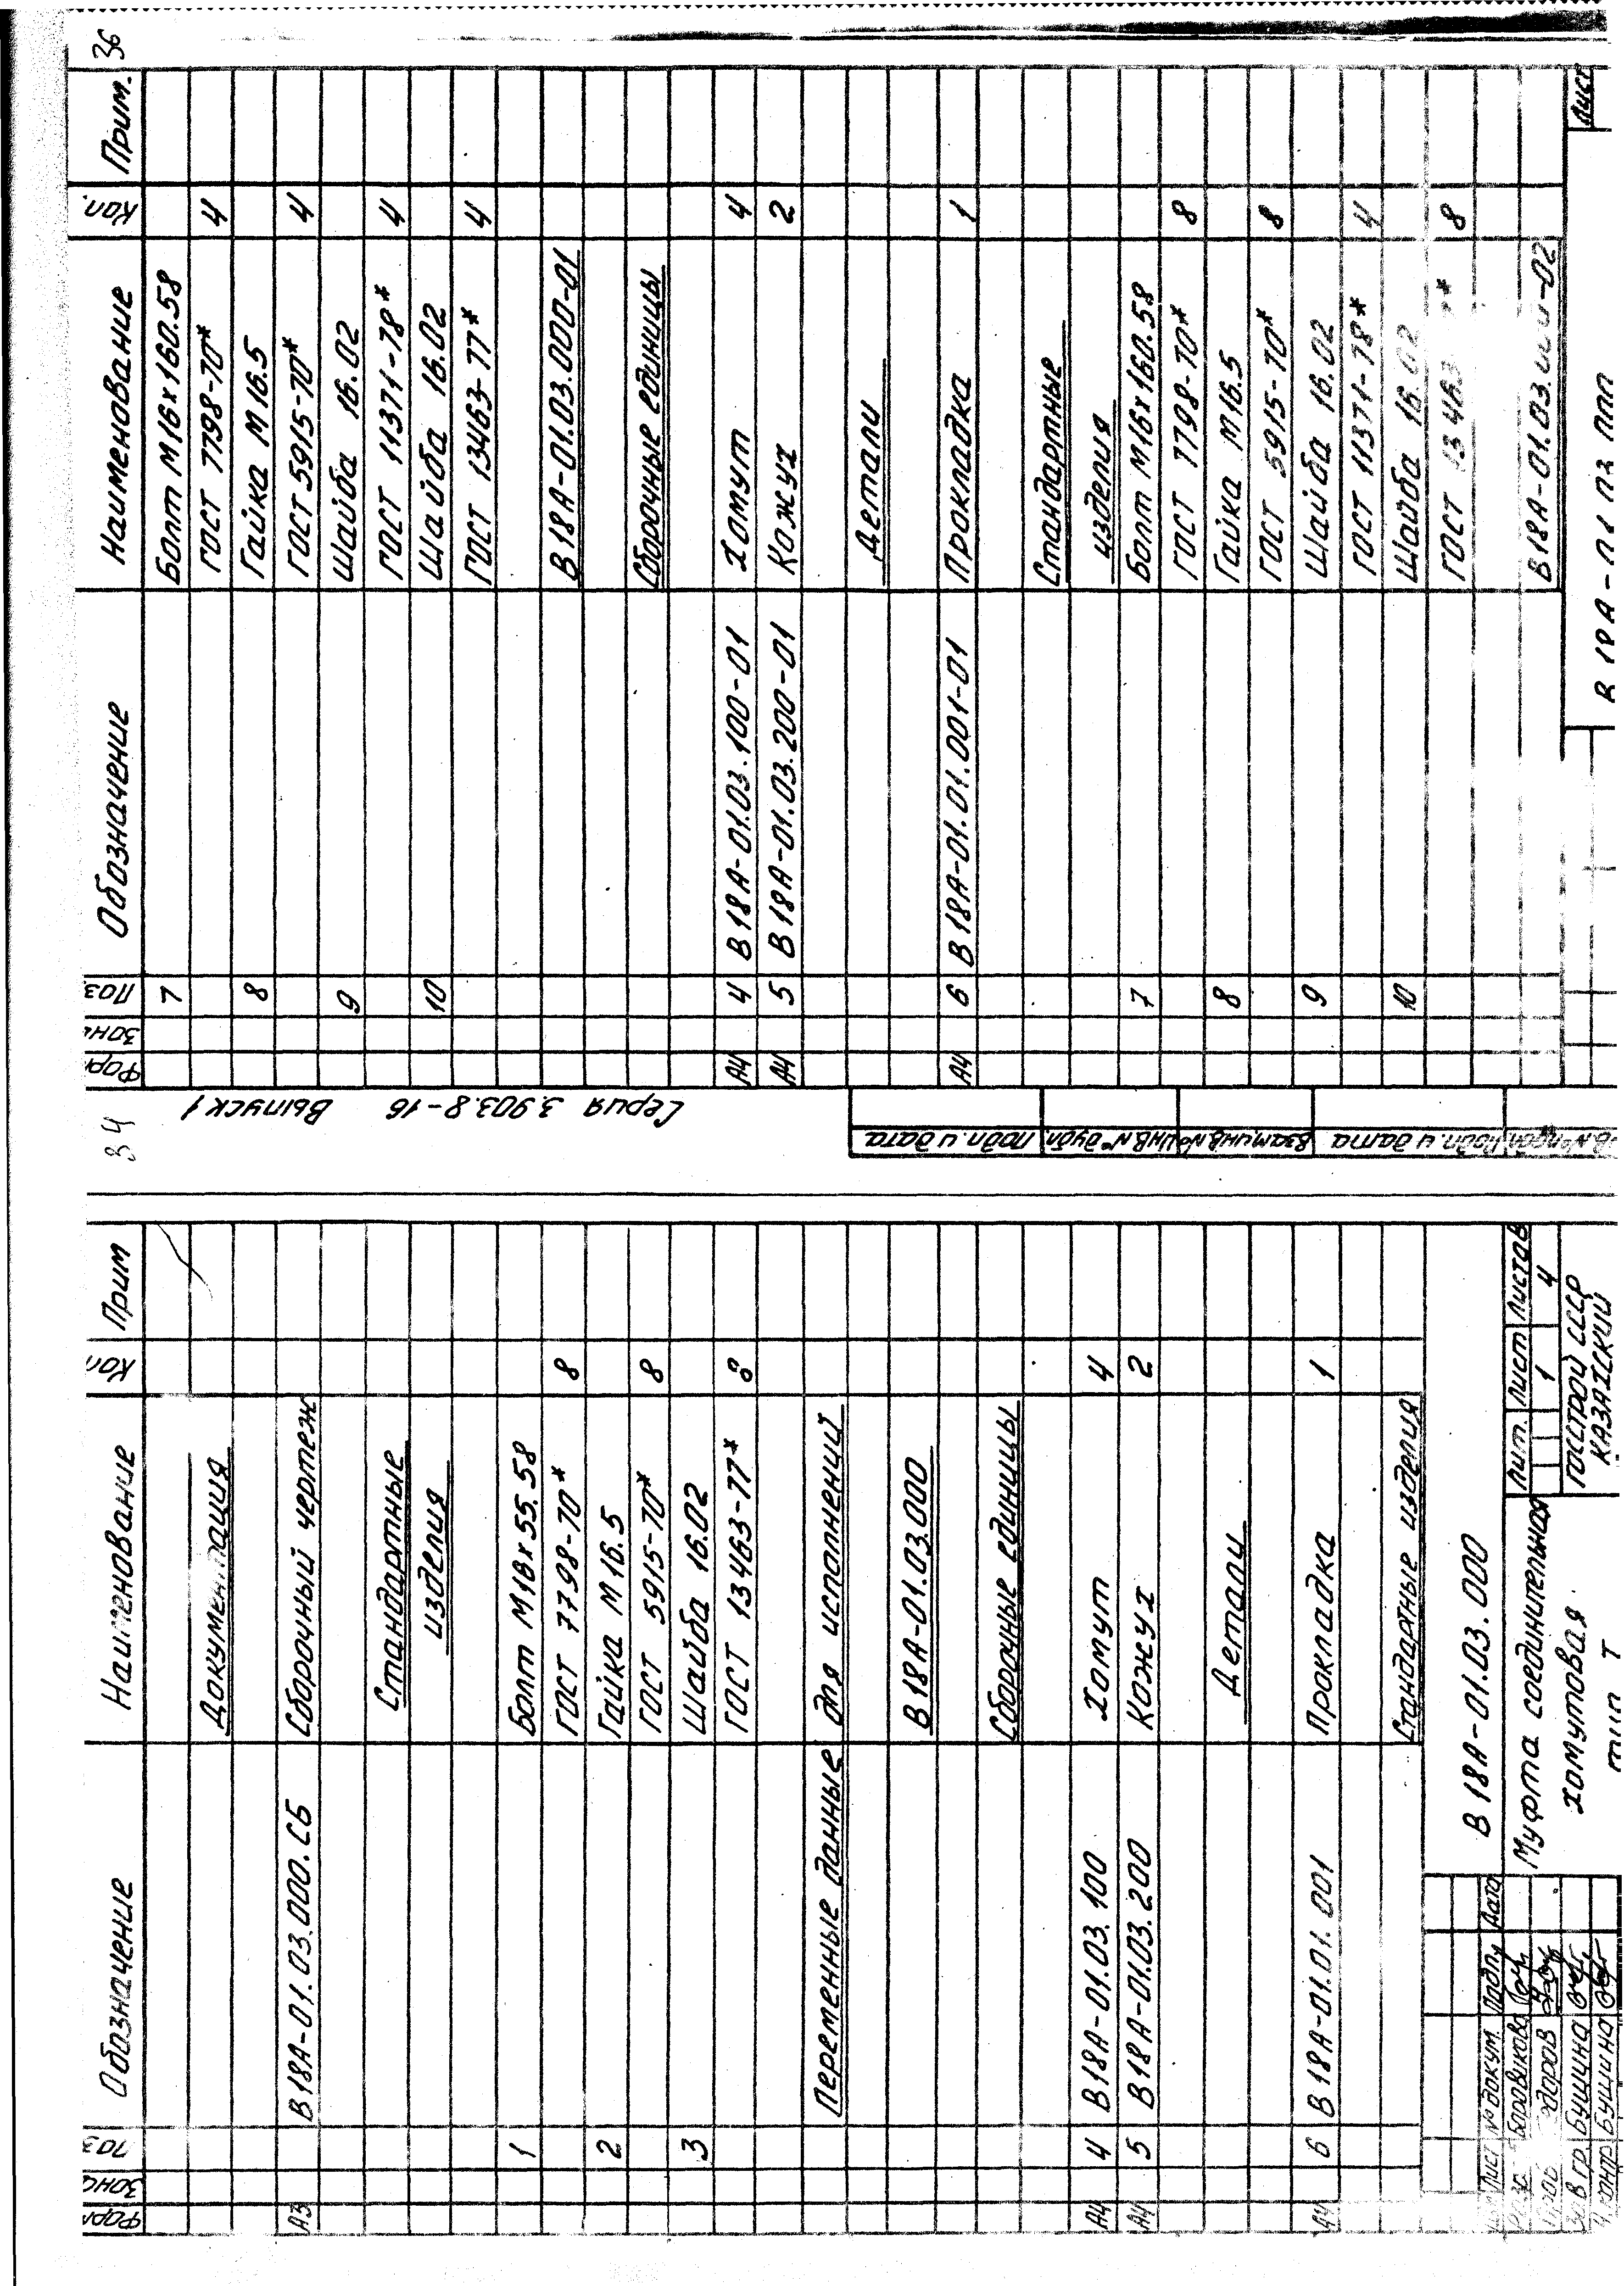 Форм Зона Поз. Обозначение Наименование Кол. Прим
Документация
А3 В18А-01.03.000.СБ Сборочный чертеж
Стандартные
изделия
1 Болт М16х55.58
ГОСТ 7798-70* 8
2 Гайка М16.5
ГОСТ 5915-70* 8
3 Шайба 16.02
ГОСТ 13463-77* 8
Переменные данные для исполнений
В18А-01.03.000
Сборочные единицы
А4 4 В18А-01.03.100 Хомут 4
А4 5 В18А-01.03.200 Кожух 2
Детали
А4 6 В18А-01.01.001 Прокладка 1
Стандартные изделия
В18А-01.03.000
Лист № докум. Подп. Дата
Боровикова
Зав гр. Бушина
Бушина
Муфта соединительная
хомутовая
Лит. Лист Листов
1 4
ГОССТРОЙ СССР
КАЗАХСКИЙ
34
36
Серия 3.903.8-16 Выпуск 1
Форм Зона Поз. Обозначение Наименование Кол. Прим.
7 Болт М16х160.58
ГОСТ 7798-70* 4
8 Гайка М16.5
ГОСТ 5915-70* 4
9 Шайба 16.02
ГОСТ 11371-78* 4
10 Шайба 16.02
ГОСТ 13463-77* 4
В18А-01.03.000-01
Сборочные единицы
А4 4 В18А-01.03.100-01 Хомут 4
А4 5 В18А-01.03.200-01 Кожух 2
Детали
А4 6 В18А-01.01.001-01 Прокладка 1
Стандартные
изделия
7 Болт М16х160.58
ГОСТ 7798-70* 8
8 Гайка М16.5
ГОСТ 5915-70* 8
9 Шайба 16.02
ГОСТ 11371-78* 4
10 Шайба 16.02
ГОСТ 8
Подп. и дата
Инв.№ дубл.
Взам.инв.№
Подп. и дата
Лист